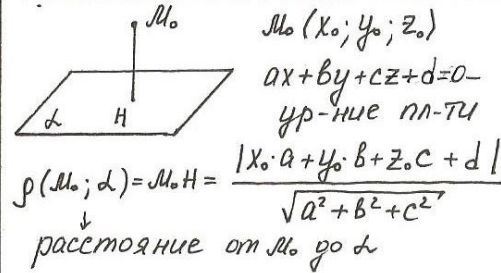 M₀
α H
M₀ (x₀; y₀; z₀)
ax+by+cz+d=0–
ур-ние пл-ти
ρ(M₀; α) = M₀H = |x₀·a + y₀·b + z₀c + d| / √(a² + b² + c²)
расстояние от M₀ до α